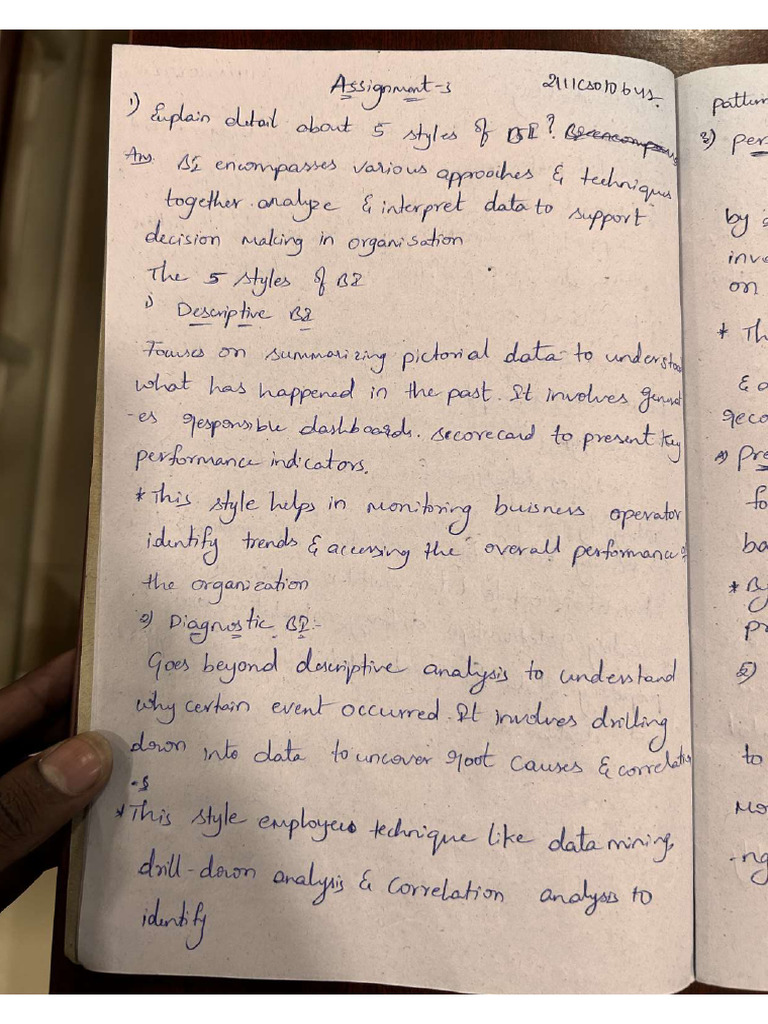 Assignment-3
1) Explain detail about 5 styles of BI?
Ans. BI encompasses various approaches & techniques
together analyze & interpret data to support
decision making in organisation
The 5 styles of BI
i) Descriptive BI
Focuses on summarizing pictorial data to understood
what has happened in the past. It involves generat
-es responsible dashboards. secorecard to present key
performance indicators.
*This style helps in Monitoring buisness operator
identify trends & accessing the overall performance of
the organization
2) Diagnostic BI:-
Goes beyond descriptive analysis to understand
why certain event occurred. It involves drilling
down into data to uncover root causes & correlation
-s
*This style employees technique like data mining,
drill-down analysis & correlation analysis to
identify
pattern
3)
by
on
* Th
& a
reco
4) Pre
fo
ba
* By
pr
5)
to
Mo
-ng